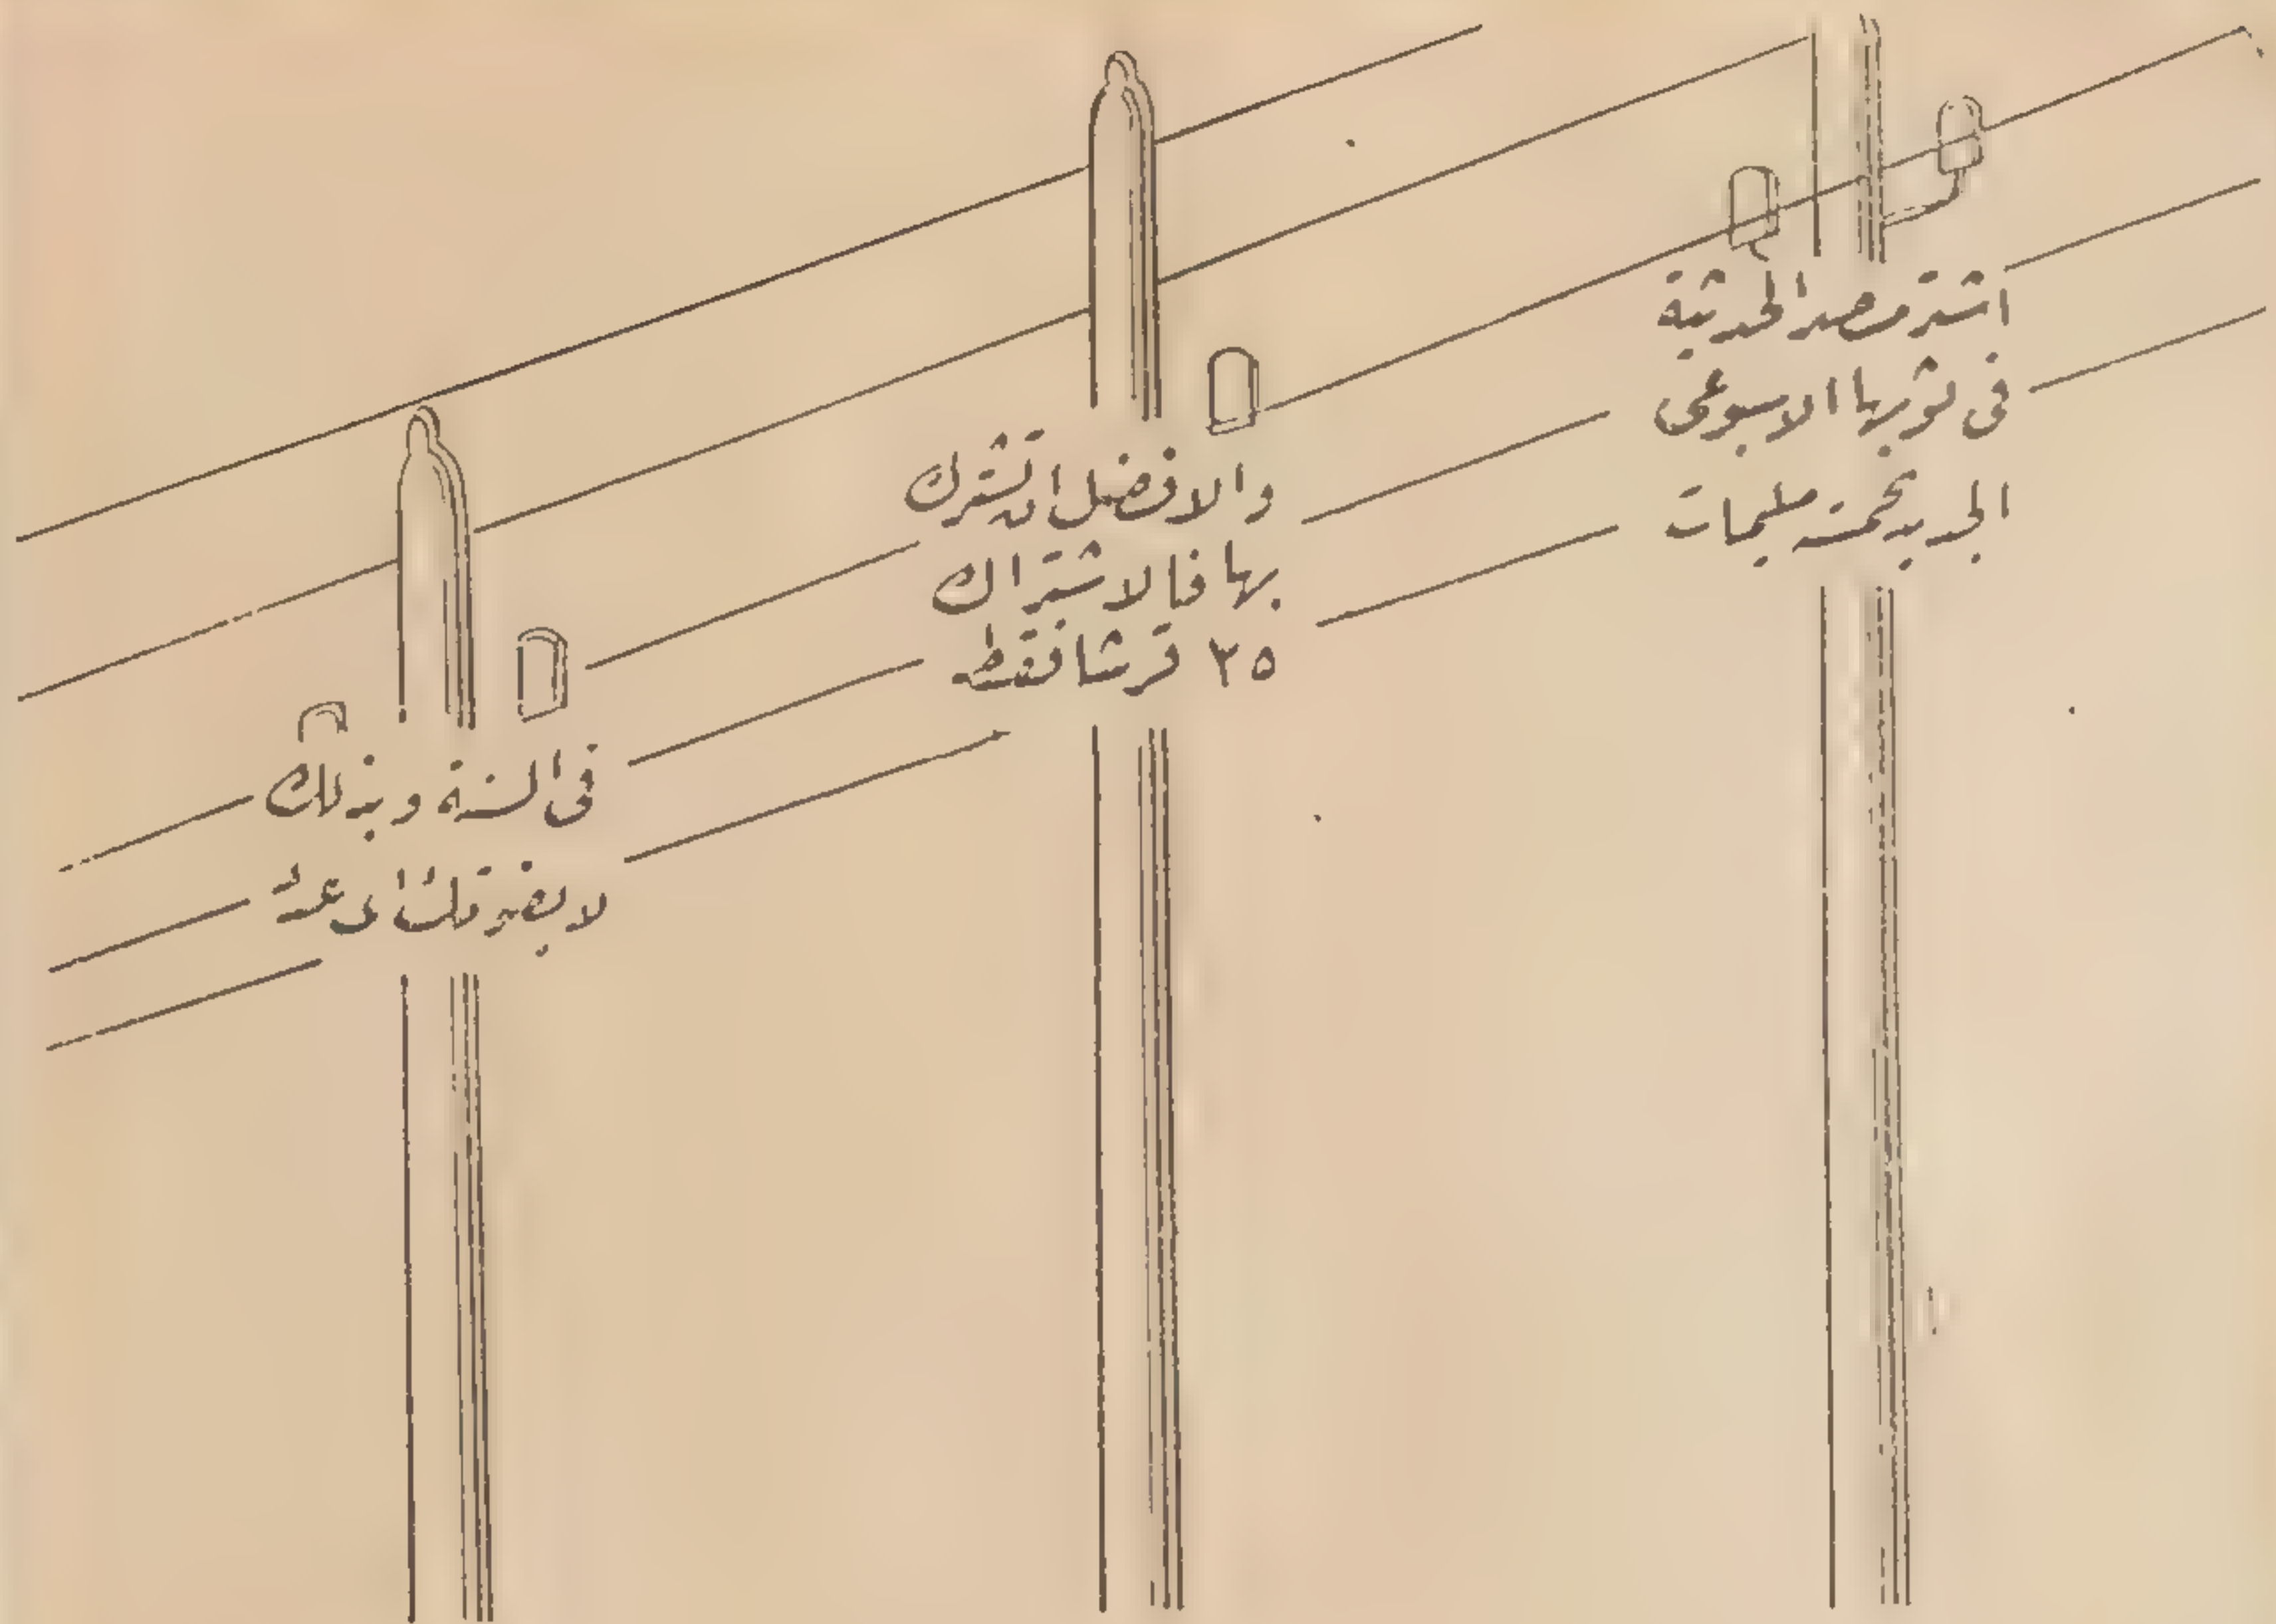 اشتر مصر الحديثة
فى ثوبها الاسبوعى
الجديد بخمسة مليمات
والافضل ان تشترك
بها فالاشتراك
٣٥ قرشا فقط
فى السنة وبذلك
لا يفوتك اى عدد